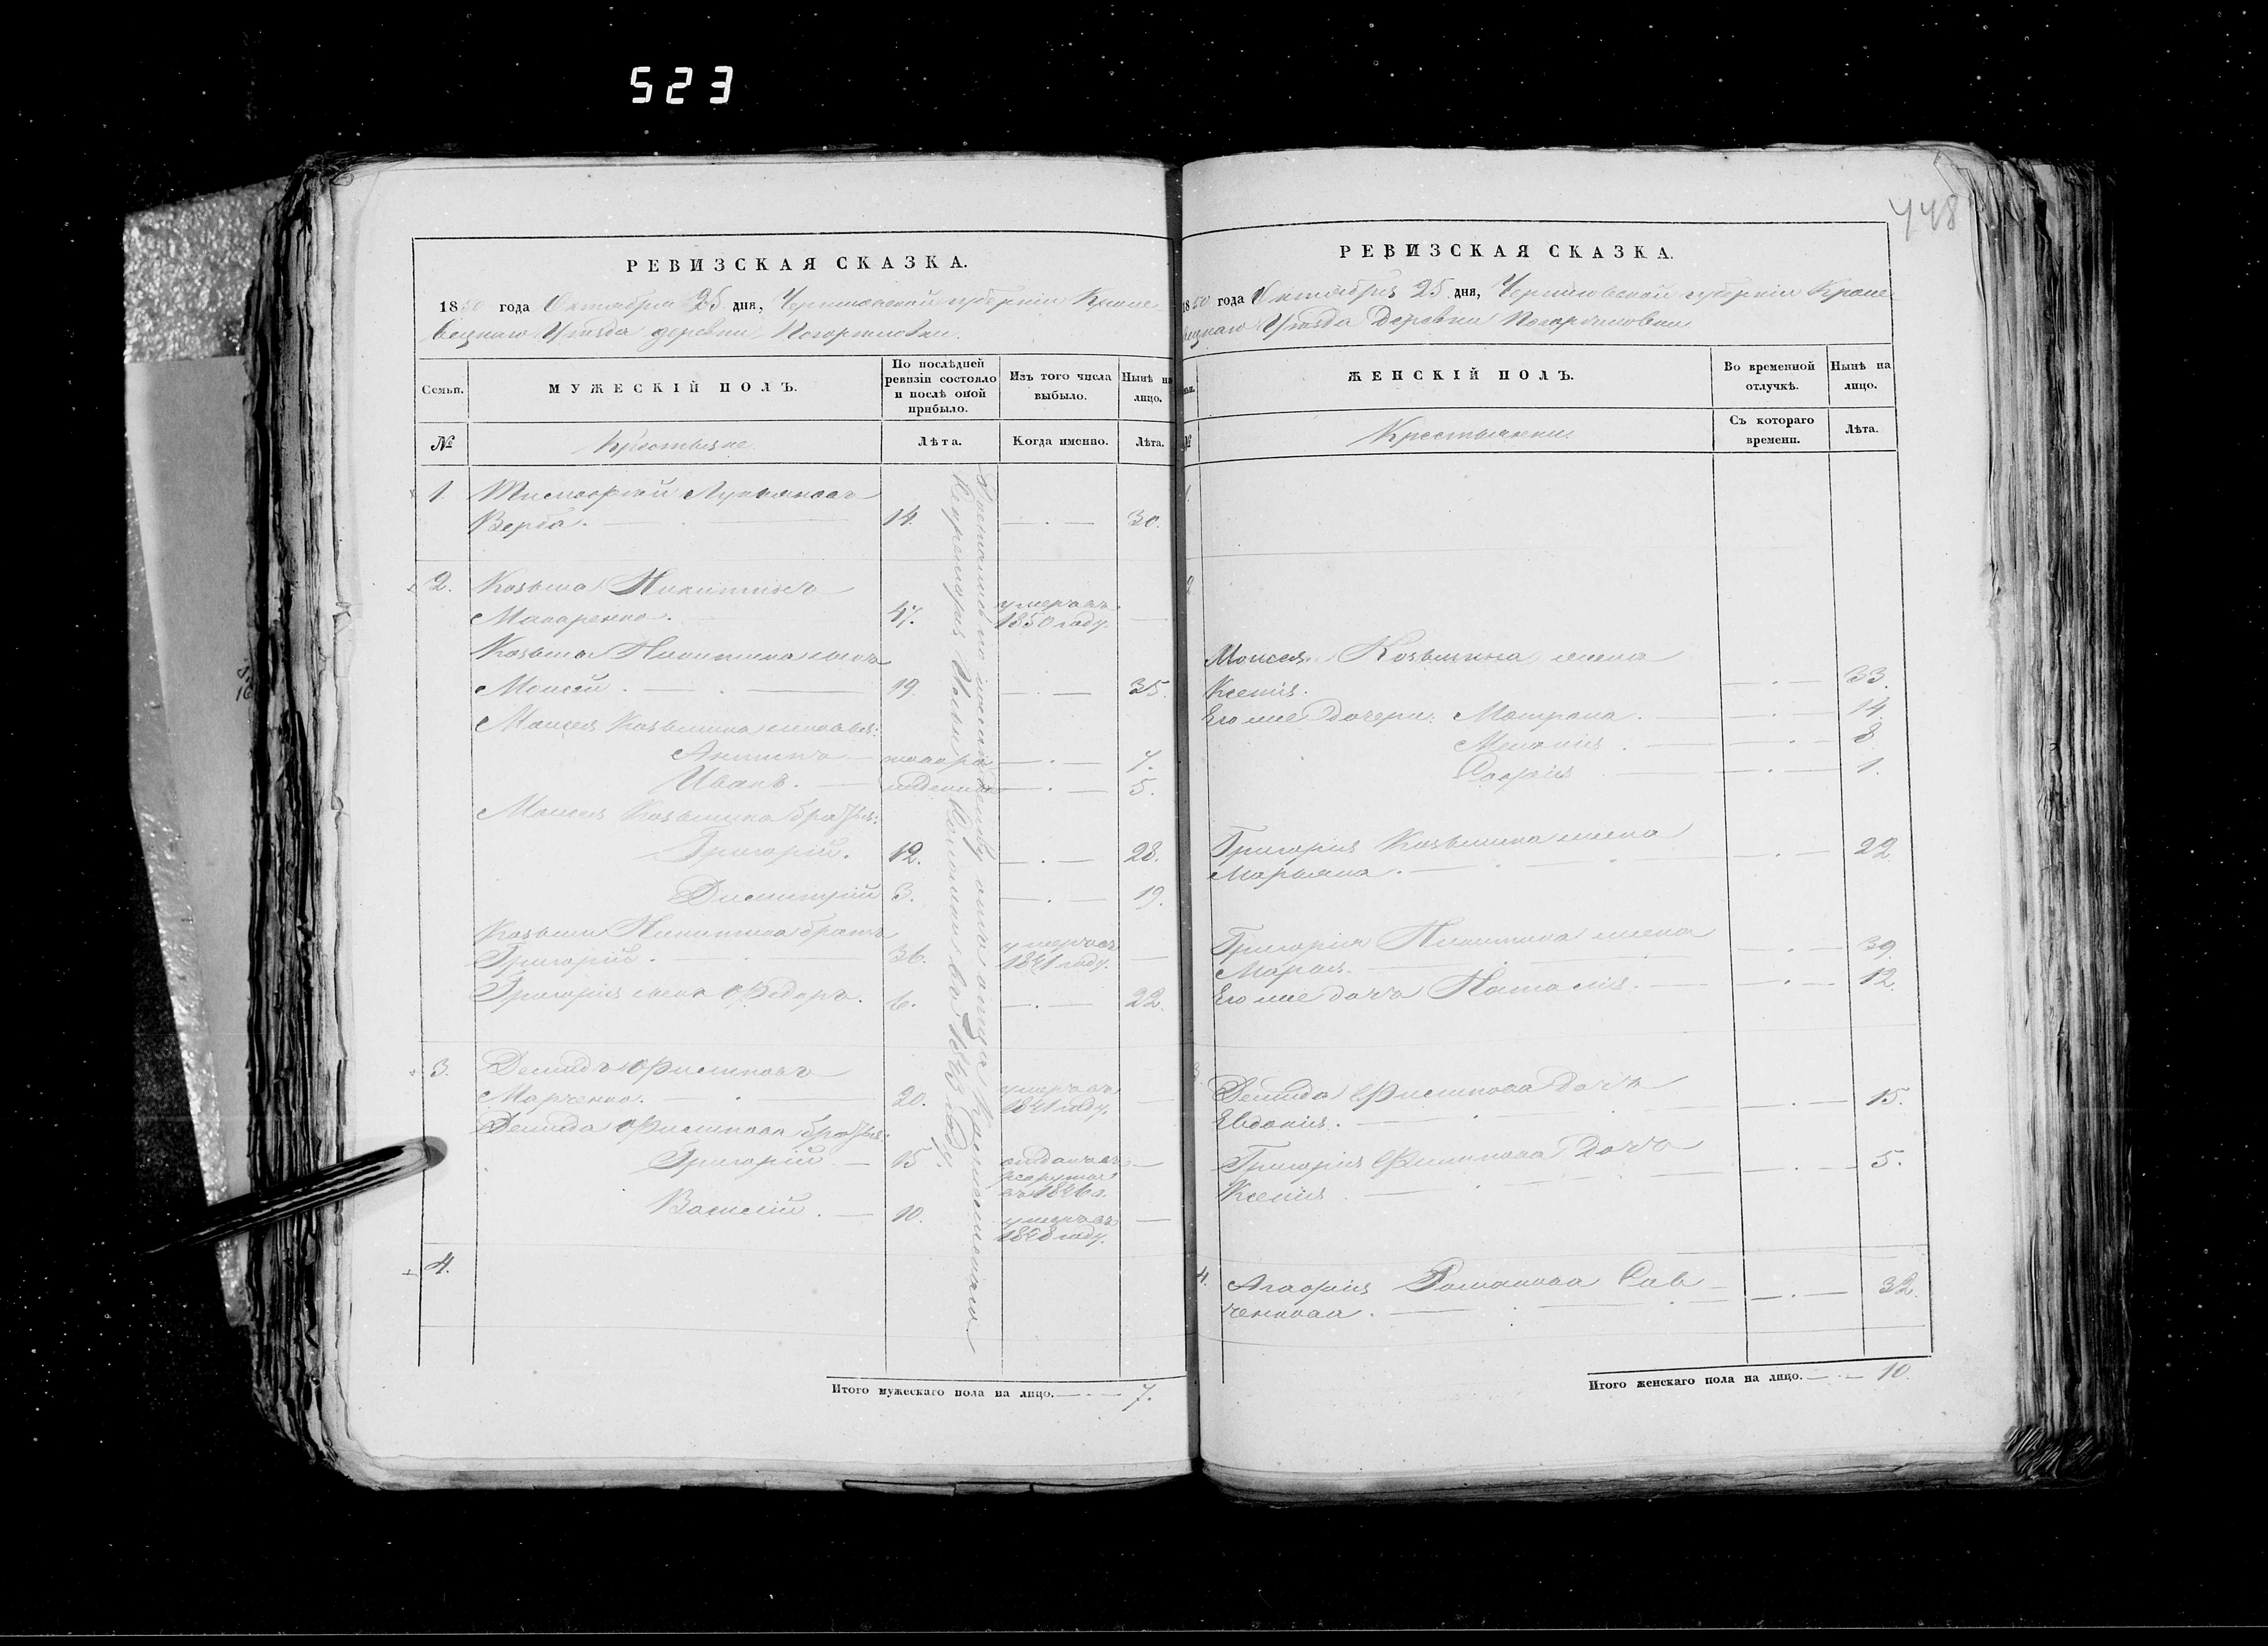 523
448
РЕВИЗСКАЯ СКАЗКА.
1850 года Октября 25 дня, Черниговской губерніи Кроле-
вецкаго Уѣзда деревни
Семьи.
МУЖЕСКІЙ ПОЛЪ.
По послѣдней ревизіи состояло и послѣ оной прибыло.
Изъ того числа выбыло.
Нынѣ на лицо.
№
Крестьяне
Лѣта.
Когда именно.
Лѣта.
1. Тимофей Лукьяновъ
Верба. 14. 30.
2. Козьма Никитинъ
Макаренко. 47. умеръ въ 1850 году.
Козьмы Никитина сынъ
Моисей. 19. 35.
Моисея Козьмина сыновья:
Антипъ 7.
Иванъ. 5.
Моисея Козьмина братья:
Григорій. 12. 28.
Димитрій 3. 19.
Козьмы Никитина братъ
Григорій. 36. умеръ въ 1841 году.
Григорія сынъ Федоръ. 6. 22.
3. Демидъ Филиповъ
Марченко. 20. умеръ въ 1841 году.
Демида Филипова братья:
Григорій 15. отданъ въ рекруты въ 1846 г.
Василій. 10. умеръ въ 1848 году.
4.
Итого мужескаго пола на лицо. 7.
РЕВИЗСКАЯ СКАЗКА.
1850 года Октября 25 дня, Черниговской губерніи Кроле-
вецкаго Уѣзда Деревни
ЖЕНСКІЙ ПОЛЪ.
Во временной отлучкѣ.
Нынѣ на лицо.
№
Крестьянки
Съ котораго времени.
Лѣта.
1.
2
Моисея Козьмина жена
Ксенія. 33.
Его же дочери: Матрона. 14.
Меланія. 8.
Софія 1.
Григорія Козьмина жена
Марьяна. 22.
Григорія Никитина жена
Марья. 39.
Его же дочь Наталія. 12.
3.
Демида Филипова дочь
Евдокія. 15.
Григорія Филипова Дочь
Ксенія 5.
4. Агафія Романова Сав-
ченкова. 32.
Итого женскаго пола на лицо. 10.